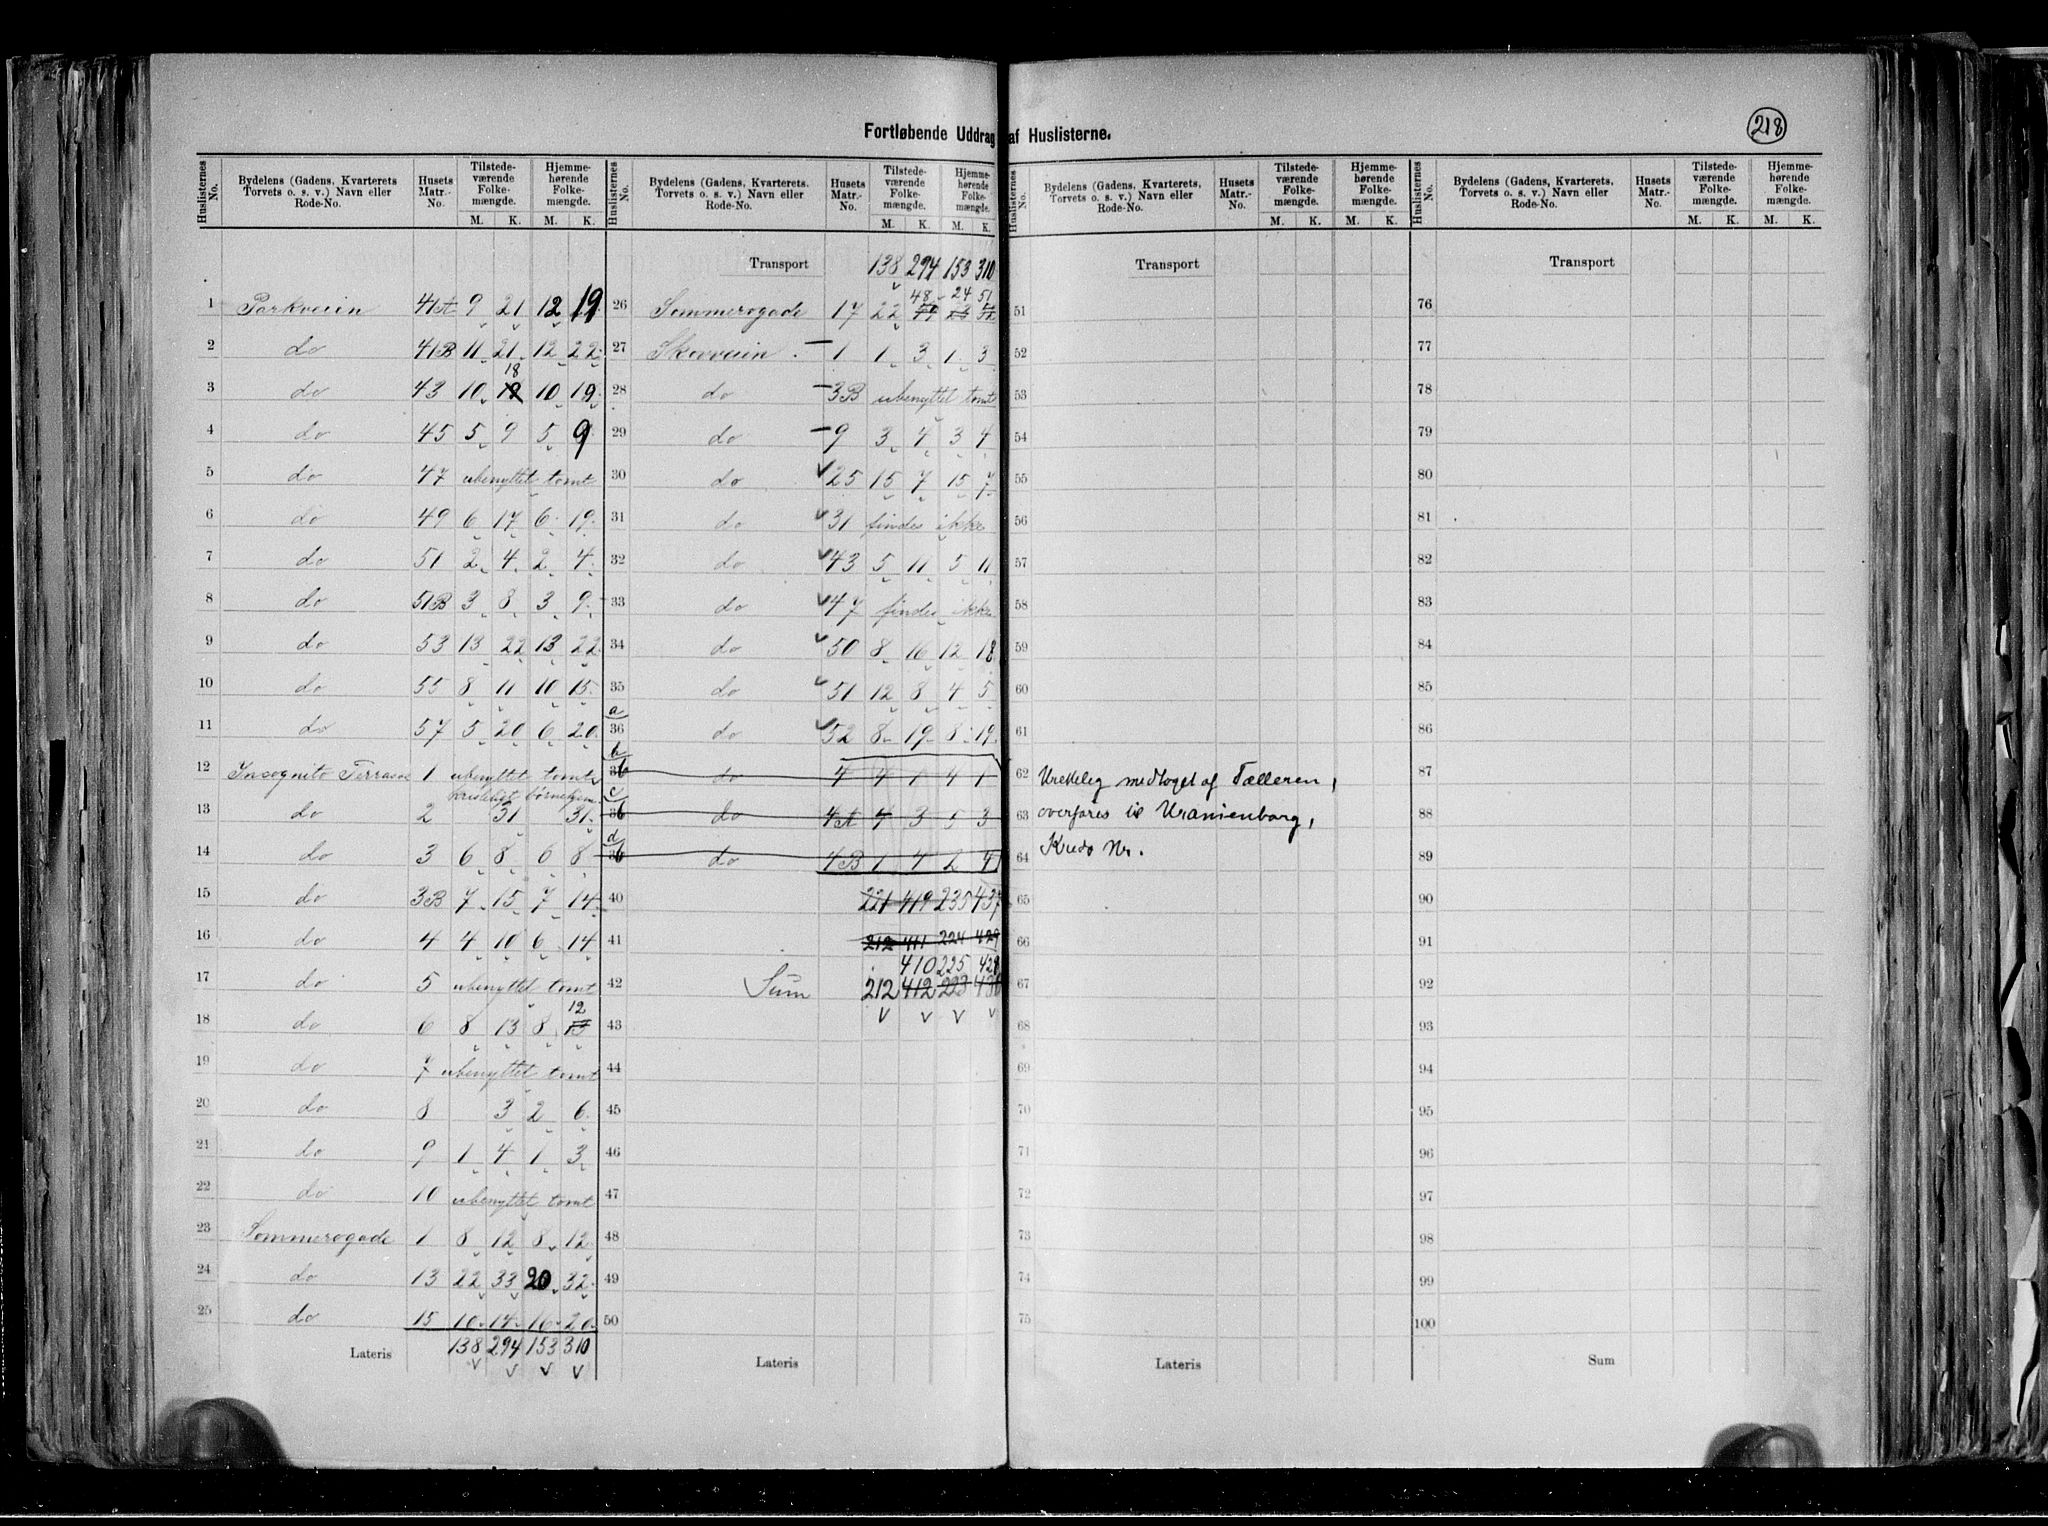 218
Fortløbende Uddrag af Huslisterne.
Huslisternes No. Bydelens (Gadens, Kvarterets Torvets o. s. v.) Navn eller Rode-No. Husets Matr.-No. Tilstedeværende Folkemængde. M. K. Hjemmehørende Folkemængde. M. K.
1 Parkveien 41A 9 21 12 19
2 do 41B 11 21 12 22
3 do 43 10 18 10 19
4 do 45 5 9 5 9
5 do 47 ubenyttet tomt
6 do 49 6 17 6 19
7 do 51 2 4 2 4
8 do 51B 3 8 3 9
9 do 53 13 22 13 22
10 do 55 8 11 10 15
11 do 57 5 20 6 20
12 Incognito Terrasse 1 ubenyttet tomt
kristeligt børnehjem
13 do 2 31 31
14 do 3 6 8 6 8
15 do 3B 7 15 7 14
16 do 4 4 10 6 14
17 do 5 ubenyttet tomt
12
18 do 6 8 13 8 13
19 do 7 ubenyttet tomt
20 do 8 3 2 6
21 do 9 1 4 1 3
22 do 10 ubenyttet tomt
23 Sommerogade 1 8 12 8 12
24 do 13 22 33 20 32
25 do 15 10 14 16 20
Lateris 138 294 153 310
Huslisternes No. Bydelens (Gadens, Kvarterets. Torvets o. s. v.) Navn eller Rode-No. Husets Matr.-No. Tilstedeværende Folkemængde. M. K. Hjemmehørende Folkemængde. M. K.
Transport 138 294 153 310
48 24 51
26 Sommerogade 17 22
27 Skovveien 1 1 3 1 3
28 do 3B ubenyttet tomt
29 do 9 3 4 3 4
30 do 25 15 7 15 7
31 do 31 findes ikke
32 do 43 5 11 5 11
33 do 47 findes ikke
34 do 50 8 16 12 18
35 do 51 12 8 4 5
a
36 do 52 8 19 8 19
b
36 do 4 4 1 4 1
c
36 do 4A 4 3 5 3
d
36 do 4B 1 4 2 4
40 221 419 235 437
41 212 411 224 429
410 225 428
42 Sum 212 412 223 430
43
44
45
46
47
48
49
50
Lateris
Huslisternes No. Bydelens (Gadens, Kvarterets, Torvets o. s. v.) Navn eller Rode-No. Husets Matr.-No. Tilstedeværende Folkemængde. M. K. Hjemmehørende Folkemængde. M. K.
Transport
51
52
53
54
55
56
57
58
59
60
61
62 medtaget af Tælleren,
63 overføres til Uranienborg,
64 Kreds Nr.
65
66
67
68
69
70
71
72
73
74
75
Lateris
Huslisternes No. Bydelens (Gadens, Kvarterets, Torvets o. s. v.) Navn eller Rode-No. Husets Matr.-No. Tilstedeværende Folkemængde. M. K. Hjemmehørende Folkemængde. M. K.
Transport
76
77
78
79
80
81
82
83
84
85
86
87
88
89
90
91
92
93
94
95
96
97
98
99
100
Sum